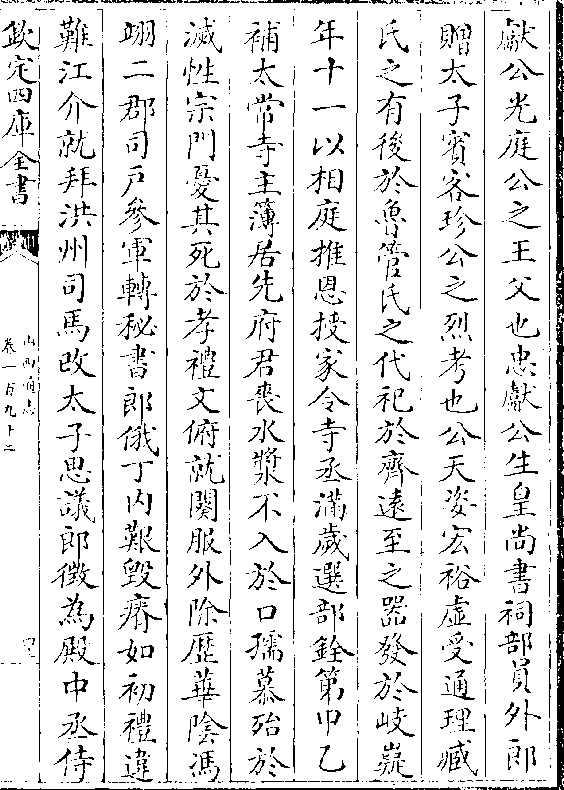 獻公光庭公之王父也忠獻公生皇尚書祠部員外郎
贈太子賔客珍公之烈考也公天姿宏裕虛受通理臧
氏之有後於魯管氏之代祀於齊遠至之器發於岐嶷
年十一以相庭推恩授家令寺丞滿歲選部銓第甲乙
補太常寺主簿居先府君喪水漿不入於口孺慕殆於
滅性宗門憂其死於孝禮文俯就闋服外除歷華隂馮
翊二郡司戸參軍轉秘書郎俄丁内艱毁瘠如初禮違
難江介就拜洪州司馬改太子思議郎徵為殿中丞侍
欽定四庫全書
山西通志
卷一百九十二